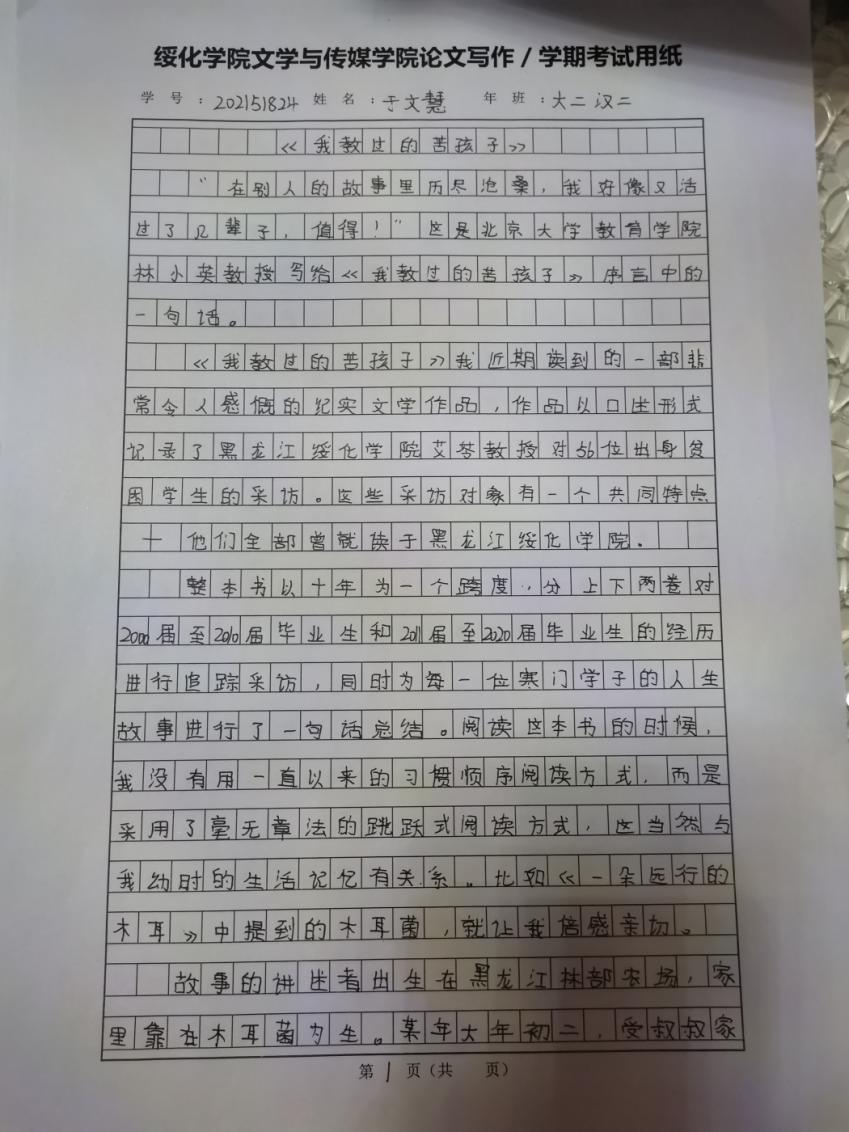 绥化学院文学与传媒学院论文写作／学期考试用纸
学 号 ：202151824 姓 名 ：于文慧 年 班 ：大二汉二
《我教过的苦孩子》
“在别人的故事里历尽沧桑，我好像又活
过了几辈子，值得！”这是北京大学教育学院
林小英教授写给《我教过的苦孩子》序言中的
一句话。
《我教过的苦孩子》我近期读到的一部非
常令人感慨的纪实文学作品，作品以口述形式
记录了黑龙江绥化学院艾苓教授对56位出身贫
困学生的采访。这些采访对象有一个共同特点
一他们全部曾就读于黑龙江绥化学院。
整本书以十年为一个跨度，分上下两卷对
2000届至2010届毕业生和2011届至2020届毕业生的经历
进行追踪采访，同时为每一位寒门学子的人生
故事进行了一句话总结。阅读这本书的时候，
我没有用一直以来的习惯顺序阅读方式，而是
采用了毫无章法的跳跃式阅读方式，这当然与
我幼时的生活记忆有关系。比如《一朵远行的
木耳》中提到的木耳菌，就让我倍感亲切。
故事的讲述者出生在黑龙江林部农场，家
里靠在木耳菌为生。某年大年初二，受叔叔家
第 1 页（共 页）